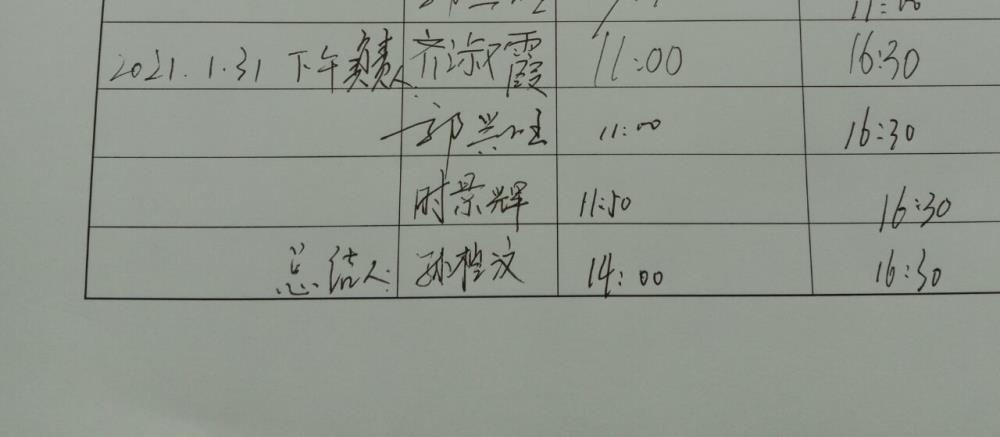 11:00
2021.1.31 下午负责人: 齐淑霞 11:00 16:30
郭兴旺 11:00 16:30
时景辉 11:50 16:30
总结人: 孙 汶 14:00 16:30